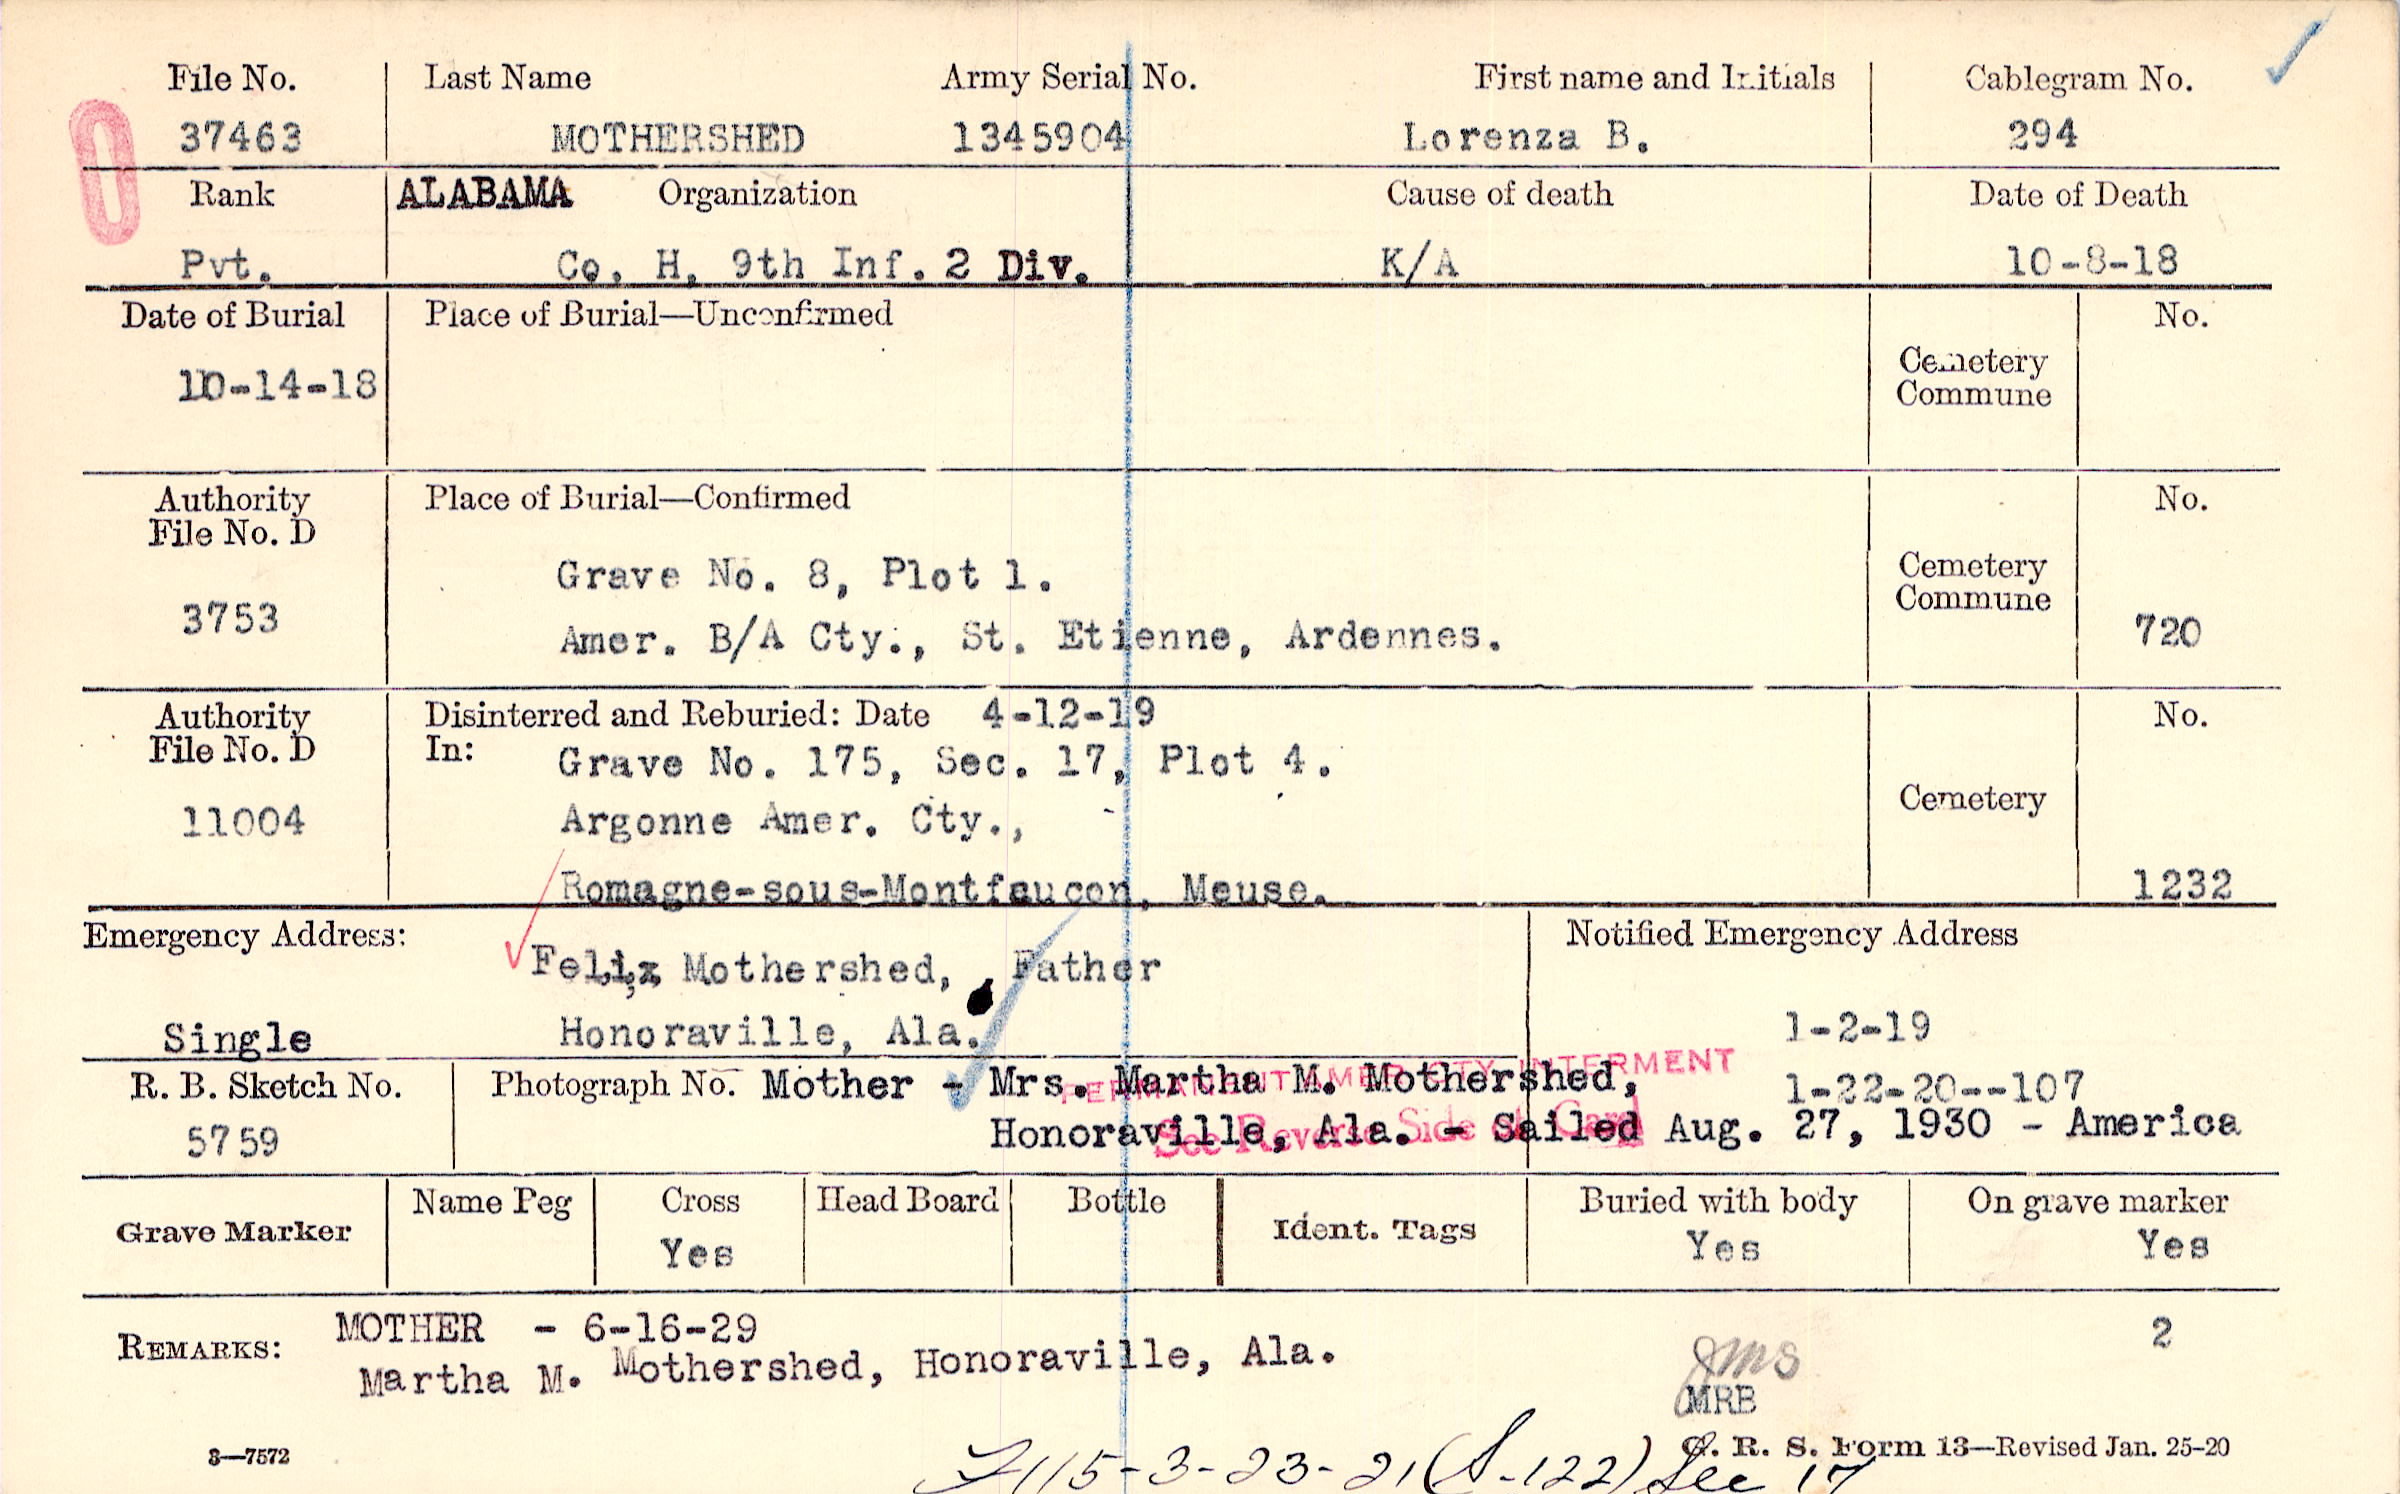 File No. Last Name Army Serial No. First name and Initials Cablegram No.
37463 MOTHERSHED 1345904 Lorenza B. 294
Rank ALABAMA Organization Cause of death Date of Death
Pvt. Co. H, 9th Inf. 2 Div. K/A 10-8-18
Date of Burial Place of Burial—Unconfirmed No.
10-14-18 Cemetery
Commune
Authority Place of Burial—Confirmed No.
File No. D
Grave No. 8, Plot 1. Cemetery
Commune
3753 Amer. B/A Cty., St. Etienne, Ardennes. 720
Authority Disinterred and Reburied: Date 4-12-19 No.
File No. D In: Grave No. 175, Sec. 17, Plot 4.
11004 Argonne Amer. Cty., Cemetery
Romagne-sous-Montfaucon, Meuse. 1232
Emergency Address: Notified Emergency Address
Felix Mothershed, Father
Single Honoraville, Ala. 1-2-19
PERMANENT AMER CTY INTERMENT
R. B. Sketch No. Photograph No. Mother - Mrs. Martha M. Mothershed, 1-22-20--107
See Reverse Side of Card
5759 Honoraville, Ala. - Sailed Aug. 27, 1930 - America
Grave Marker Name Peg Cross Head Board Bottle Ident. Tags Buried with body On grave marker
Yes Yes Yes
REMARKS: MOTHER - 6-16-29 2
Martha M. Mothershed, Honoraville, Ala.
JMS
MRB
3—7572 G. R. S. Form 13—Revised Jan. 25-20
115-3-23-21 (S-122) Sec 17